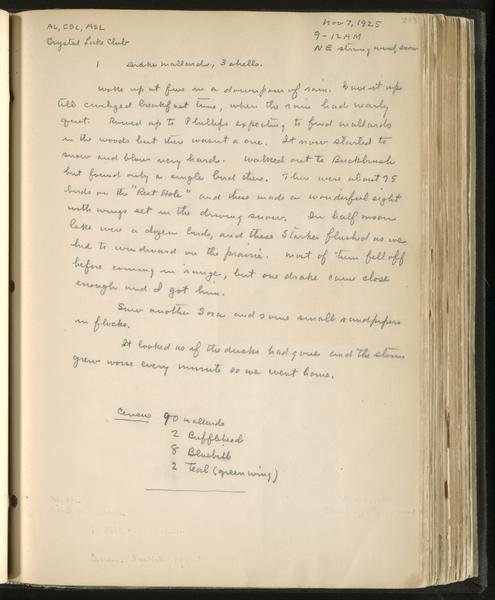 AL, CBL, ASL
Crystal Lake Club
Nov 7, 1925
9-12 AM
NE strong wind, snow
1 drake mallard, 3 shells.
Woke up at five in a downpour of rain. Gave it up
till civilized breakfast time, when the rain had nearly
quit. Rowed up to Phillips expecting to find mallards
in the woods but there wasnt a one. It now started to
snow and blow very hard. Walked out to Buckbrush
but found only a single bird there. There were about 75
birds on the "Rest Hole" and these made a wonderful sight
with wings set in the driving snow. In half moon
lake were a dozen birds, and these Starker flushed as we
hid to windward on the prairie. Most of them fell off
before coming in range, but one drake came close
enough and I got him.
Saw another Sora and some small sandpipers
in flocks.
It looked as if the ducks had gone and the storm
grew worse every minute so we went home.
Census 90 mallards
2 Bufflehead
8 Bluebill
2 Teal (greenwing)